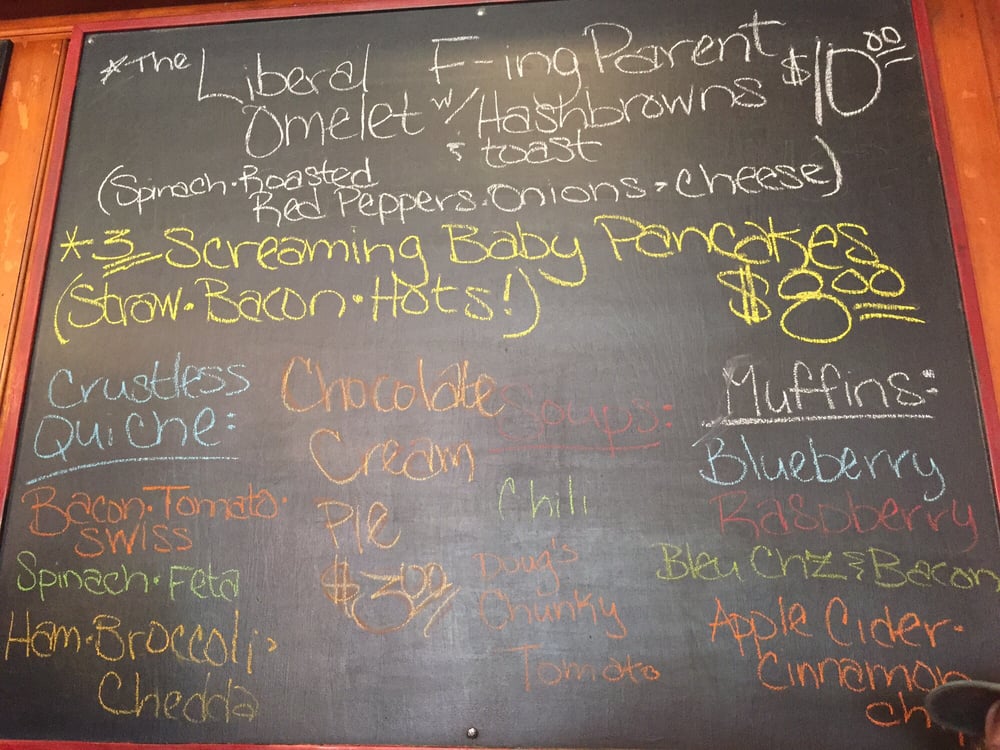 *The Liberal F-ing Parent $10.00
Omelet w/ Hashbrowns
& toast
(Spinach · Roasted
Red Peppers · Onions · cheese)
*3 Screaming Baby Pancakes
(Straw · Bacon · Hots!) $8.00
Crustless
Quiche:
Bacon · Tomato ·
Swiss
Spinach · Feta
Ham · Broccoli ·
Chedda
Chocolate
Cream
Pie
$3.00
Soups:
Chili
Doug's
Chunky
Tomato
Muffins:
Blueberry
Raspberry
Bleu Chz & Bacon
Apple Cider ·
Cinnamon